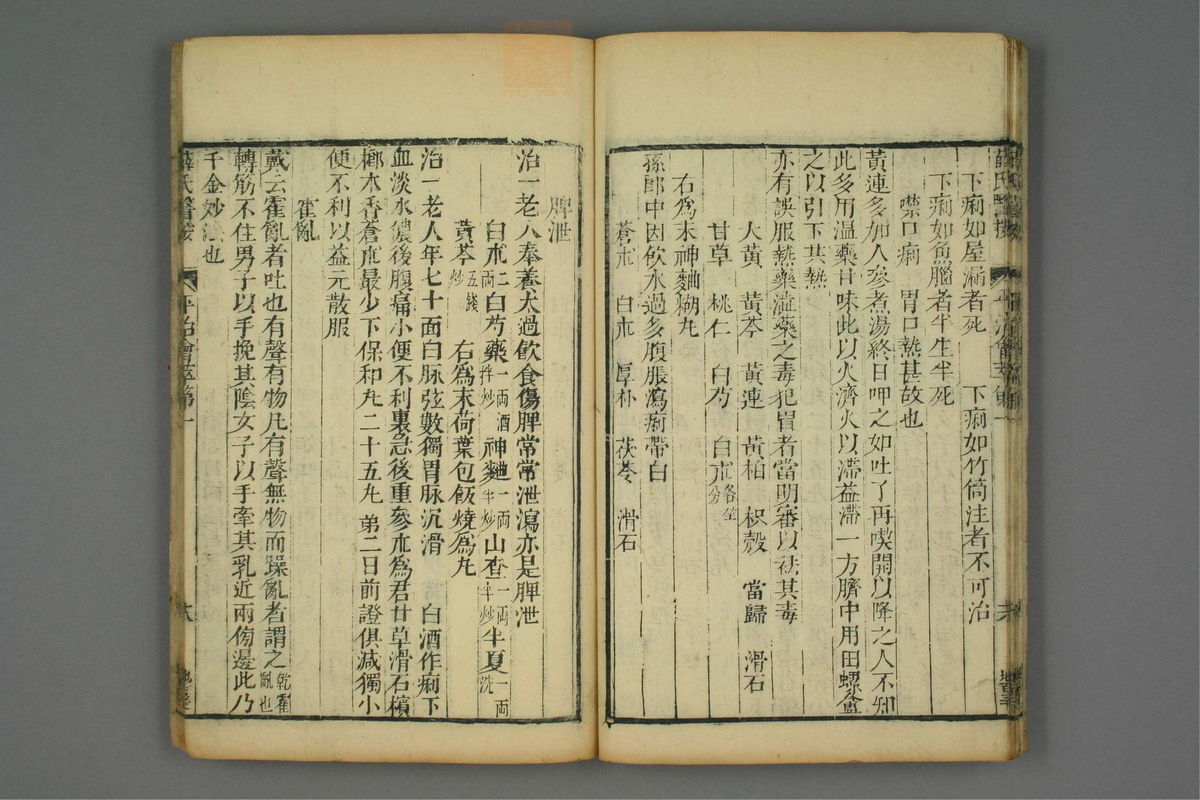 下痢如屋漏者死　下痢如竹筒注者不可治
下痢如魚腦者半生半死
噤口痢　胃口熱甚故也
黃連多加人參煮湯終日呷之如吐了再喫開以降之人不知
此多用溫藥甘味此以火濟火以滯益滯一方臍中用田螺盦
之以引下其熱
亦有誤服熱藥澁藥之毒犯胃者當明審以袪其毒
大黃　黃芩　黃連　黃柏　枳殼　當歸　滑石
甘草　桃仁　白芍　白朮各等分
右爲末神麯糊丸
孫郎中因飲水過多腹脹瀉痢帶白
蒼朮　白朮　厚朴　茯苓　滑石
脾泄
治一老人奉養太過飲食傷脾常常泄瀉亦是脾泄
白朮二兩白芍藥一兩酒拌炒神麯一兩半炒山查一兩半炒半夏一兩洗
黃芩五錢炒　右爲末荷葉包飯燒爲丸
治一老人年七十面白脉弦數獨胃脉沉滑　白酒作痢下
血淡水濃後腹痛小便不利裏急後重參朮爲君甘草滑石檳
榔木香蒼朮最少下保和丸二十五丸　第二日前證俱減獨小
便不利以益元散服
霍亂
戴云霍亂者吐也有聲有物凡有聲無物而躁亂者謂之乾霍亂也
轉筋不住男子以手挽其陰女子以手牽其乳近兩傍邊此乃
千金妙法也
薛氏醫按　平治會萃第一